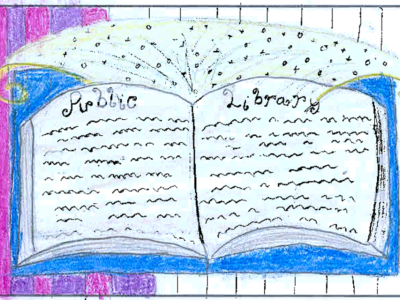 Public Library